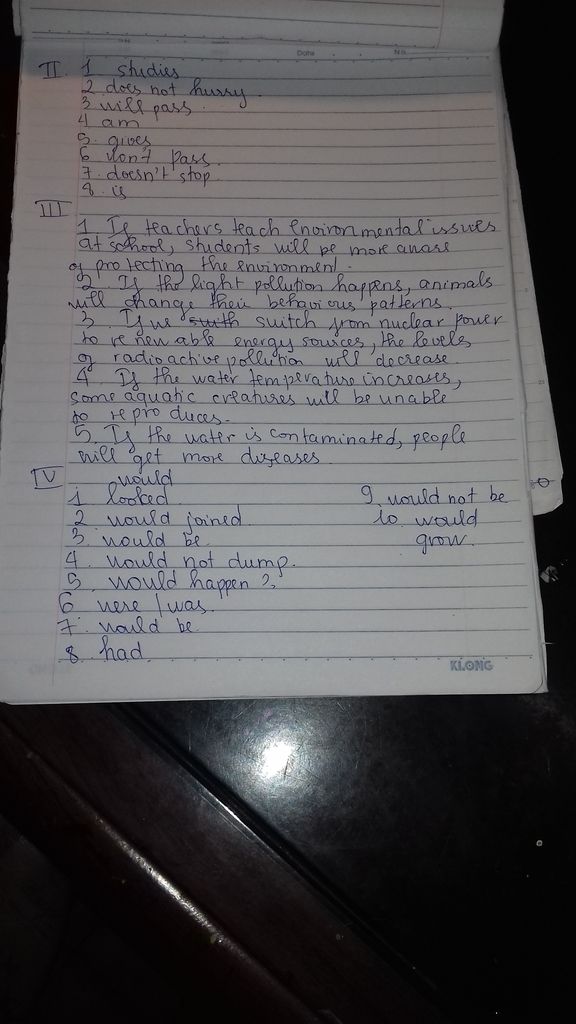 Date No.
II. 1 studies
2 does not hurry.
3 will pass.
4 am
5. gives
6 don't pass.
7. doesn't stop.
8. is
III
1. If teachers teach environmental issues
at school, students will be more aware
of protecting the environment.
2. If the light pollution happens, animals
will change their behavious patterns.
3. If we swith switch from nuclear power
to renewable energy sources, the levels
of radioactive pollution will decrease
4. If the water temperature increases,
some aquatic creatures will be unable
to reproduces.
5. If the water is contaminated, people
will get more diseases
IV would
1 looked 9 would not be
2 would joined 10 would
3. would be grow.
4. would not dump.
5. would happen?
6 were / was.
7. would be
8. had
KLONG